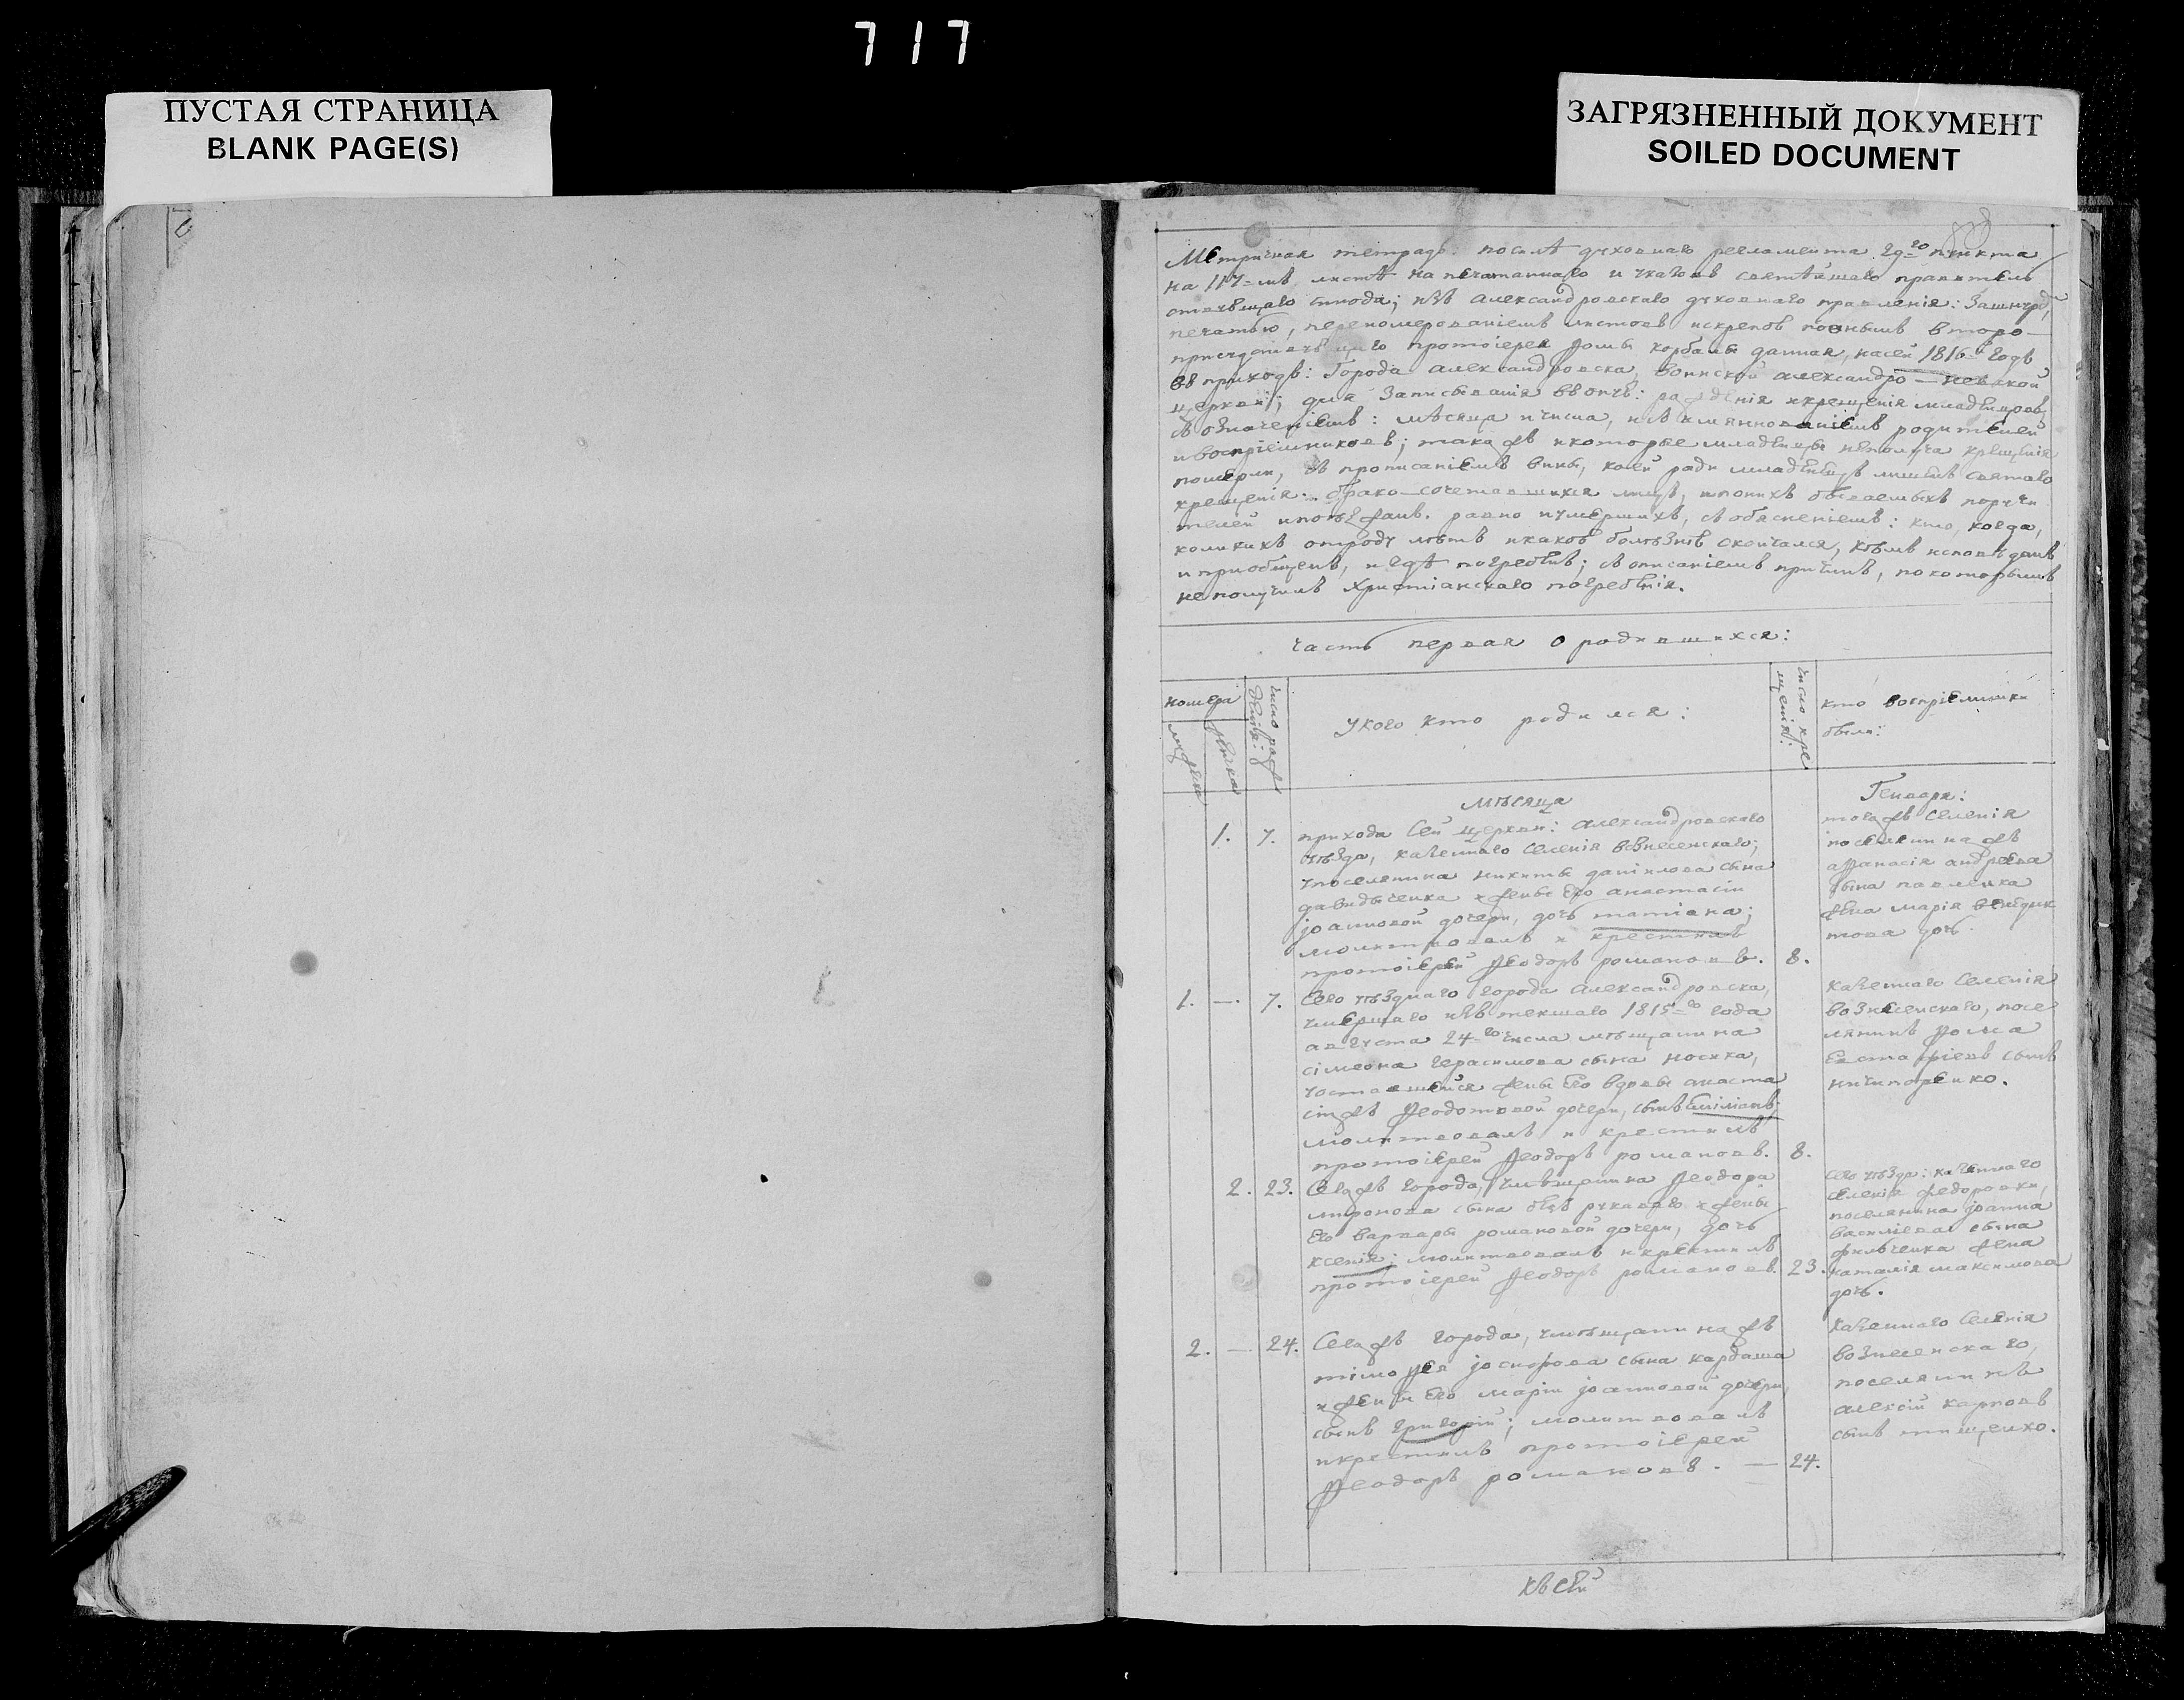 717
ПУСТАЯ СТРАНИЦА
BLANK PAGE(S)
ЗАГРЯЗНЕННЫЙ ДОКУМЕНТ
SOILED DOCUMENT
Метричная тетрадь: посилѣ духовнаго регламента 29=го пункта
на 117=мъ листѣ напечатаннаго и указовъ святѣйшаго правитель
ствующаго синода; изъ александровскаго духовнаго правленія: За шнуро,
печатью, перенумерованіемъ листовъ искрепою поонымъ второ—
присудствующаго протоіерея Ѳомы корбалы данная, насей 1816= годъ
въ приходъ: Города александровска, воинской александро—невской
церкви; для Записыванія въ оную: рожденія икрещенія младенцовъ,
съ означеніемъ: мѣсяца ичисла, исъ имяннованіемъ родителей
ивоспріемниковъ; такожъ икоторые младенцы неполуча крещенія
померли, съ прописаніемъ вины, коей ради младенецъ лишенъ святаго
крещенія. брако—сочетавшихся лицъ, ипонихъ бываемыхъ поручи
телей ипоѣзжанъ. равно иумершихъ, съ объясненіемъ: кто, когда,
коликихъ отроду лѣтъ икакою болѣзнію скончался, кѣмъ исповѣданъ
и пріобщенъ, и гдѣ погребенъ; съ описаніемъ причинъ, покоторымъ
неполучилъ Христіанскаго погребенія.
часть первая о родившихся:
номера
мужеска
женска
число рож
денія:
Укого кто родился:
число кре
щенія:
кто воспріемники
были:
мѣсяца
Генваря:
1. 7. прихода Сей церкви: александровскаго
уѣзда, казеннаго Селенія вознесенскаго;
упоселянина никиты даніилова сына
давидѣченка ижены Его анастасіи
іоанновой дочери, дочь татіана;
молитвовалъ и крестилъ
протоіерей Ѳеодоръ романовъ. 8.
тогожъ Селенія
поселянинажъ
аѳанасія андреева
сына павленка
жена марія венедик
това дочь.
1. —. 7. Сего уѣзднаго города александровска,
умершаго изъ текшаго 1815=го года
августа 24=го числа мѣщанина
сімеона герасимова сына носика,
уоставшейся жены Его вдовы анаста
сіижъ Ѳеодотовой дочери, сынъ Емиліанъ
молитвовалъ и крестилъ
протоіерей Ѳеодоръ романовъ. 8.
казеннаго Селенія
вознесенскаго, посе
лянинъ Ѳома
Евстаѳіевъ сынъ
ничипоренко.
2. 23. Сегожъ города, умѣщанина Ѳеодора
миронова сына безрукаваго ижены
Его варвары романовой дочери, дочь
ксенія; молитвовалъ икрестилъ
протоіерей Ѳеодоръ романовъ. 23.
Сего уѣзда: казеннаго
селенія федоровки,
поселянина іоанна
василіева сына
фильченка жена
наталія максимова
дочь.
2. — 24. Сегожъ города, умѣщанинажъ
тімоѳея іосифова сына кардаша
ижены Его маріи іоанновой дочери,
сынъ григорій; молитвовалъ
икрестилъ протоіерей
Ѳеодоръ романовъ. — 24.
казеннаго Селенія
вознесенскаго,
поселянинъ
алексій карповъ
сынъ тищенко.
къ сей